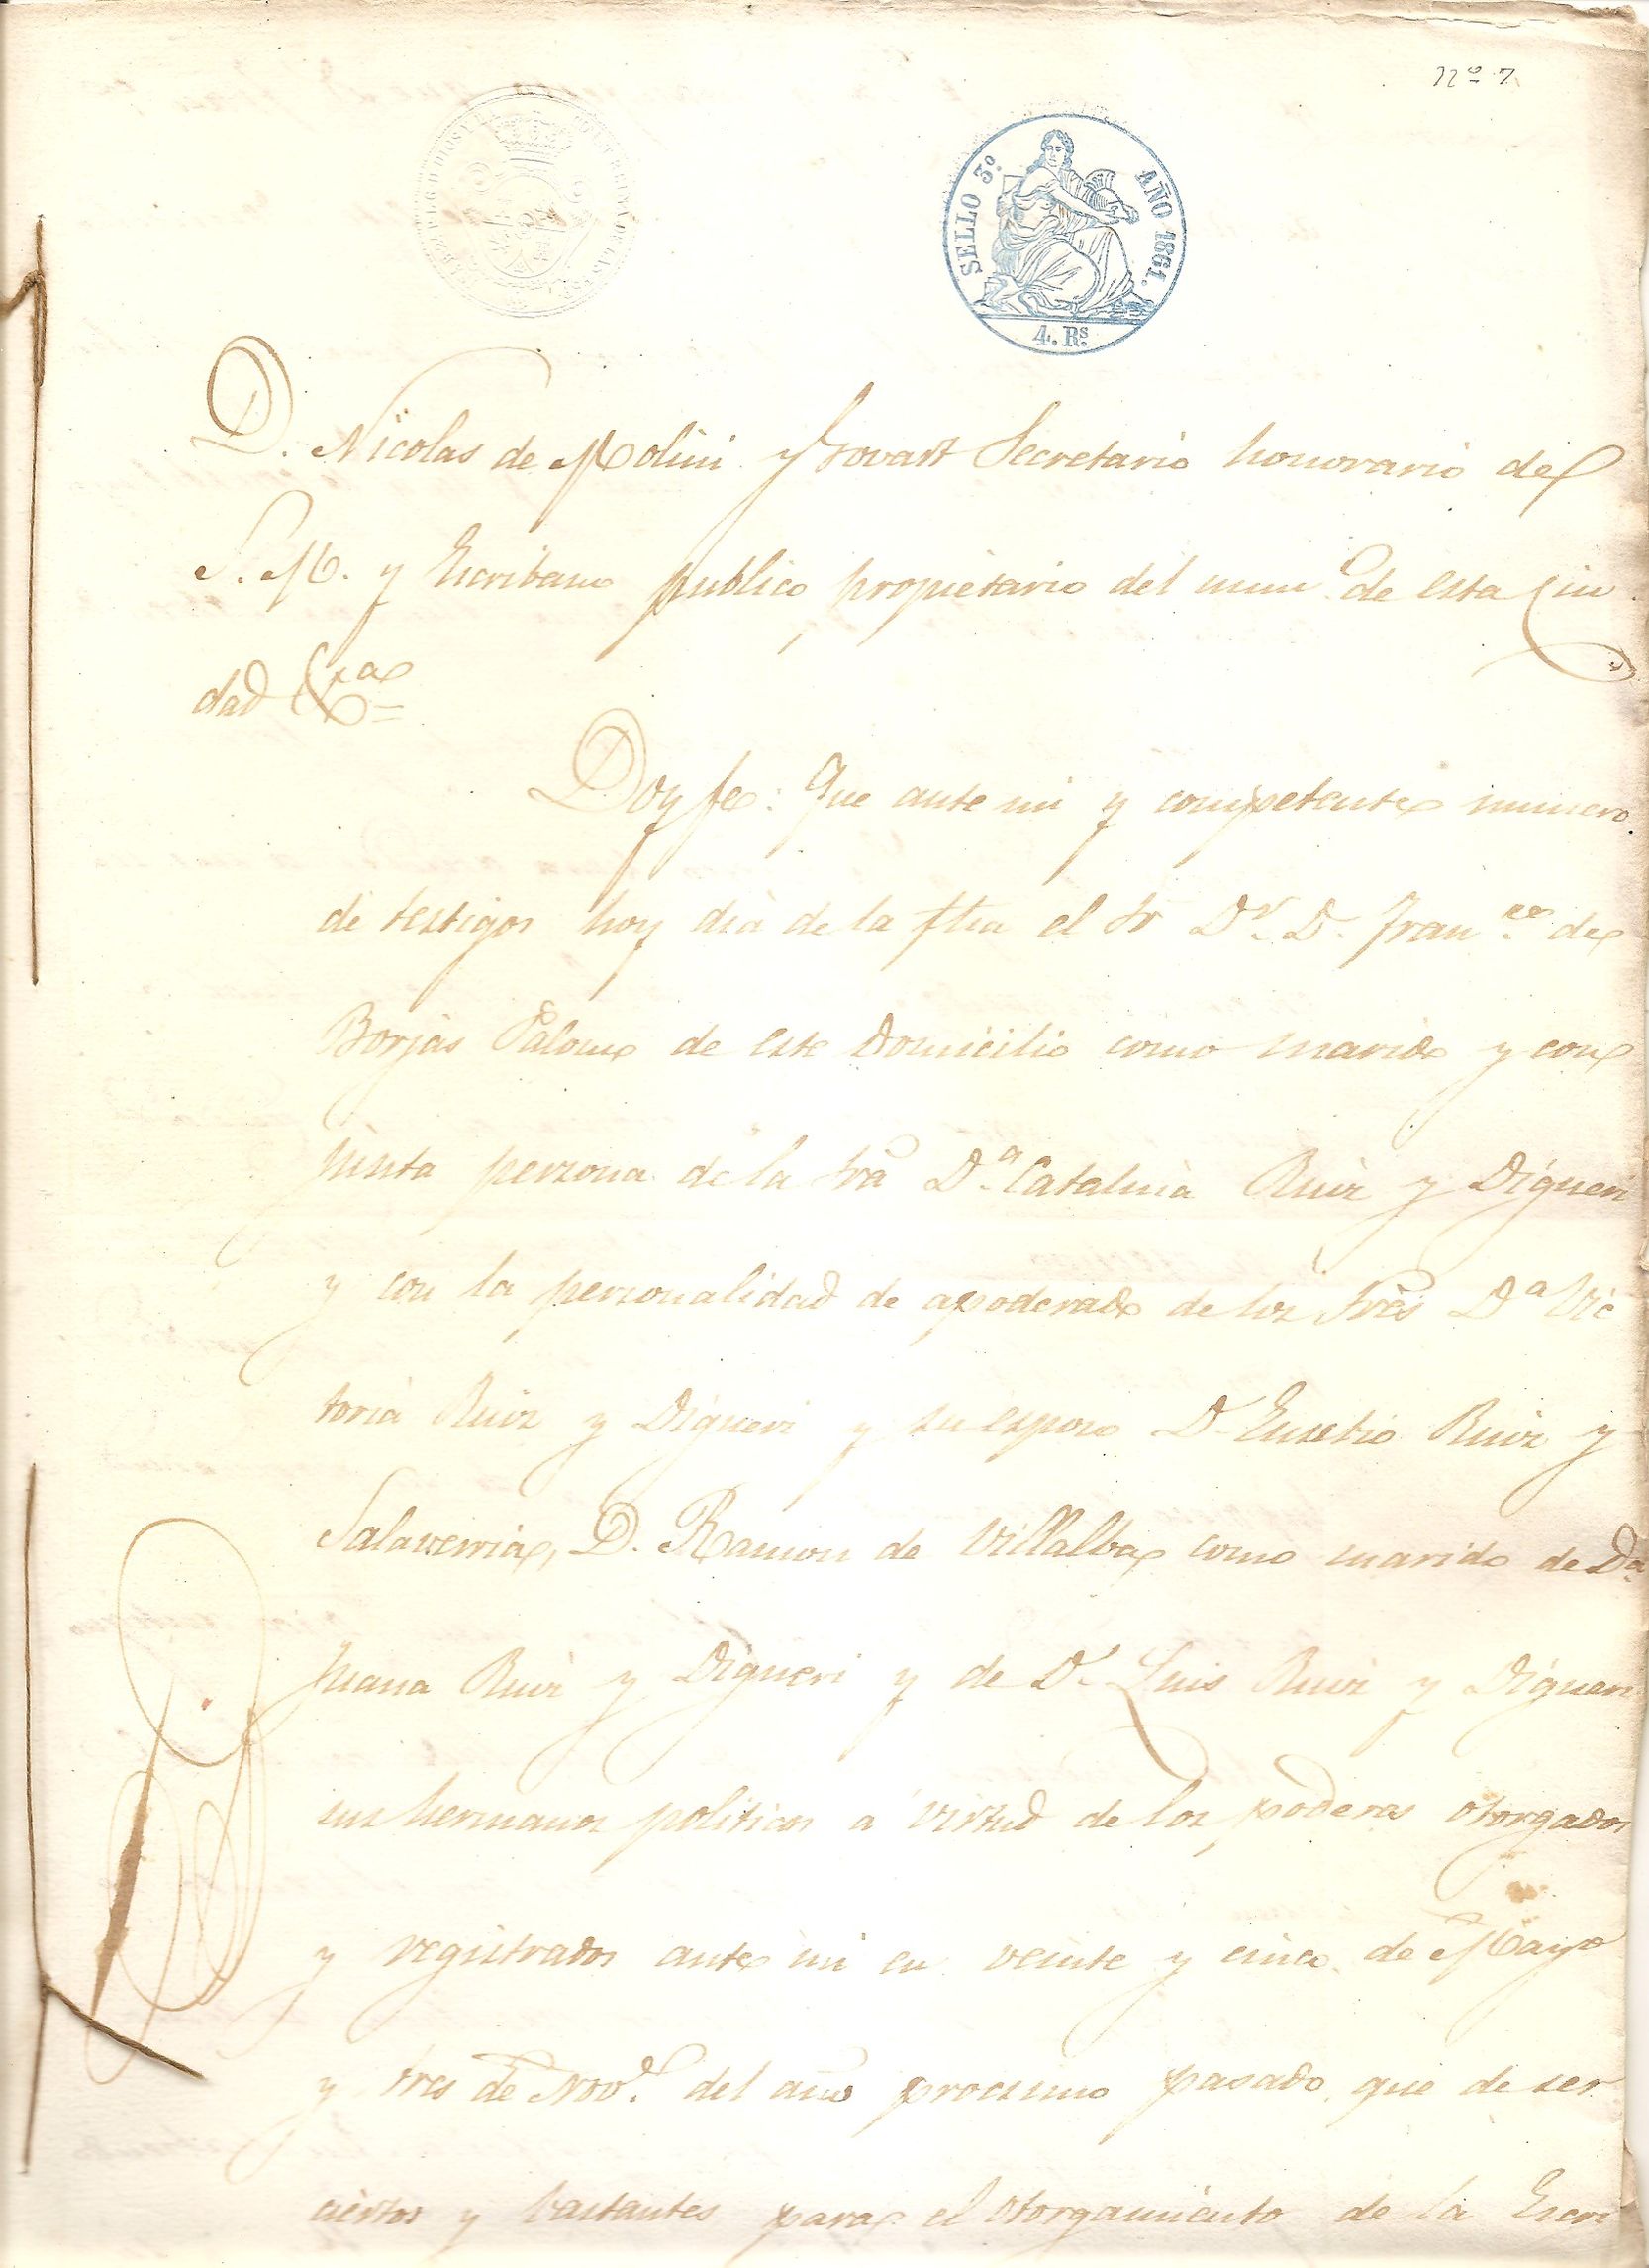 Nº 7
SELLO 3º AÑO 1861.
4. Rs.
D. Nicolas de Molini y Govart Secretario honorario de
S. M. y Escribano publico propietario del numo de esta Ciu
dad &ra=
Doy fe: Que ante mi y competente numero
de testigos hoy dia de la fha el Sr Dr. D. Franco de
Borjas Palomo de este domicilio como marido y con
junta persona de la Sra Da. Catalina Ruiz y Digueri
y con la personalidad de apoderado de los Sres Da Vic
toria Ruiz y Digueri y su esposo D. Eusebio Ruiz y
Salaverria, D. Ramon de Villalba como marido de Da
Juana Ruiz y Digueri y de D. Luis Ruiz y Digueri
sus hermanos politicos a virtud de los poderes otorgados
y registrados ante mi en veinte y cinco de Mayo
y tres de Nove. del año procsimo pasado que de ser
ciertos y bastantes para el otorgamiento de la Escri